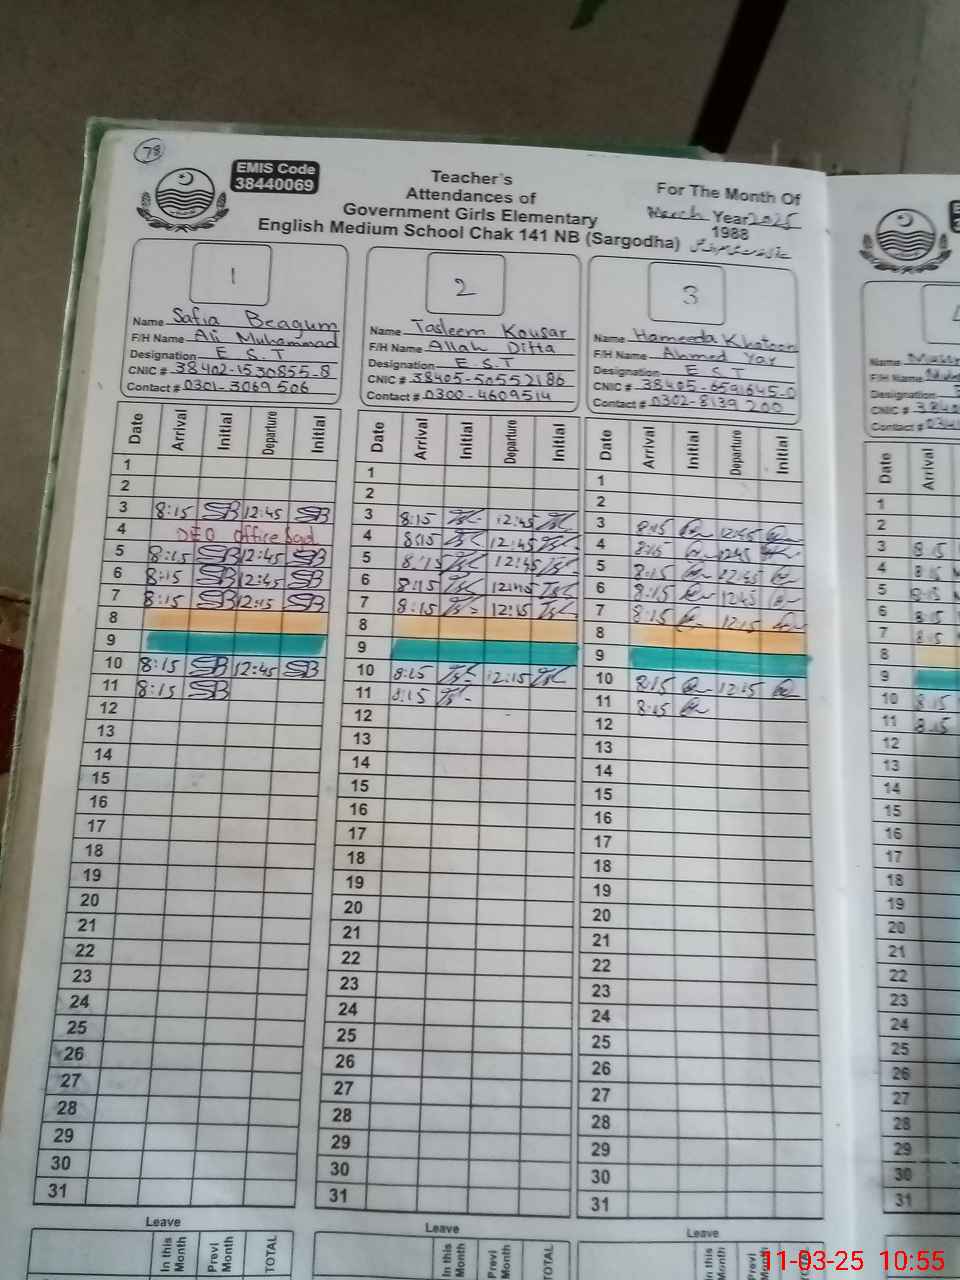 78
EMIS Code
38440069
Teacher's
Attendances of
Government Girls Elementary
English Medium School Chak 141 NB (Sargodha)
For The Month Of
March Year 2025
1988
1
Name Safia Beagum
F/H Name Ali Muhammad
Designation E S.T
CNIC # 38402-1530855-8
Contact # 0301-3069506
Date Arrival Initial Departure Initial
1
2
3 8:15 SB 12:45 SB
4 DEO office Sgd
5 8:15 SB 12:45 SB
6 8:15 SB 12:45 SB
7 8:15 SB 12:15 SB
8
9
10 8:15 SB 12:45 SB
11 8:15 SB
12
13
14
15
16
17
18
19
20
21
22
23
24
25
26
27
28
29
30
31
Leave
In this Month Previ Month TOTAL
2
Name Tasleem Kousar
F/H Name Allah Ditta
Designation E S.T
CNIC # 38405-50552186
Contact # 0300-4609514
Date Arrival Initial Departure Initial
1
2
3 8:15 12:45
4 8:15 12:45
5 8:15 12:45
6 8:15 12:45
7 8:15 12:15
8
9
10 8:15 12:15
11 8:15
12
13
14
15
16
17
18
19
20
21
22
23
24
25
26
27
28
29
30
31
Leave
In this Month Previ Month TOTAL
3
Name Hameeda Khatoon
F/H Name Ahmed Yar
Designation E S.T
CNIC # 38405-6591645-0
Contact # 0302-8139200
Date Arrival Initial Departure Initial
1
2
3 8:15 12:45
4 8:15 12:45
5 8:15 12:45
6 8:15 12:45
7 8:15 12:15
8
9
10 8:15 12:15
11 8:15
12
13
14
15
16
17
18
19
20
21
22
23
24
25
26
27
28
29
30
31
Leave
In this Month Previ Month TOTAL
Name
F/H Name
Designation
CNIC # 3840
Contact #
Date Arrival
1
2
3 8:15
4 8:15
5 8:15
6 8:15
7 8:15
8
9
10 8:15
11 8:15
12
13
14
15
16
17
18
19
20
21
22
23
24
25
26
27
28
29
30
31
11-03-25 10:55